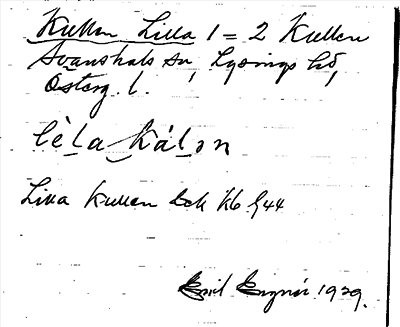 Kullen Lilla 1 = 2 Kullen
Svanshals sn, Lysings hd,
Österg. l.
lèla kálən
Lilla Kullen Kb 944
Emil 1929.